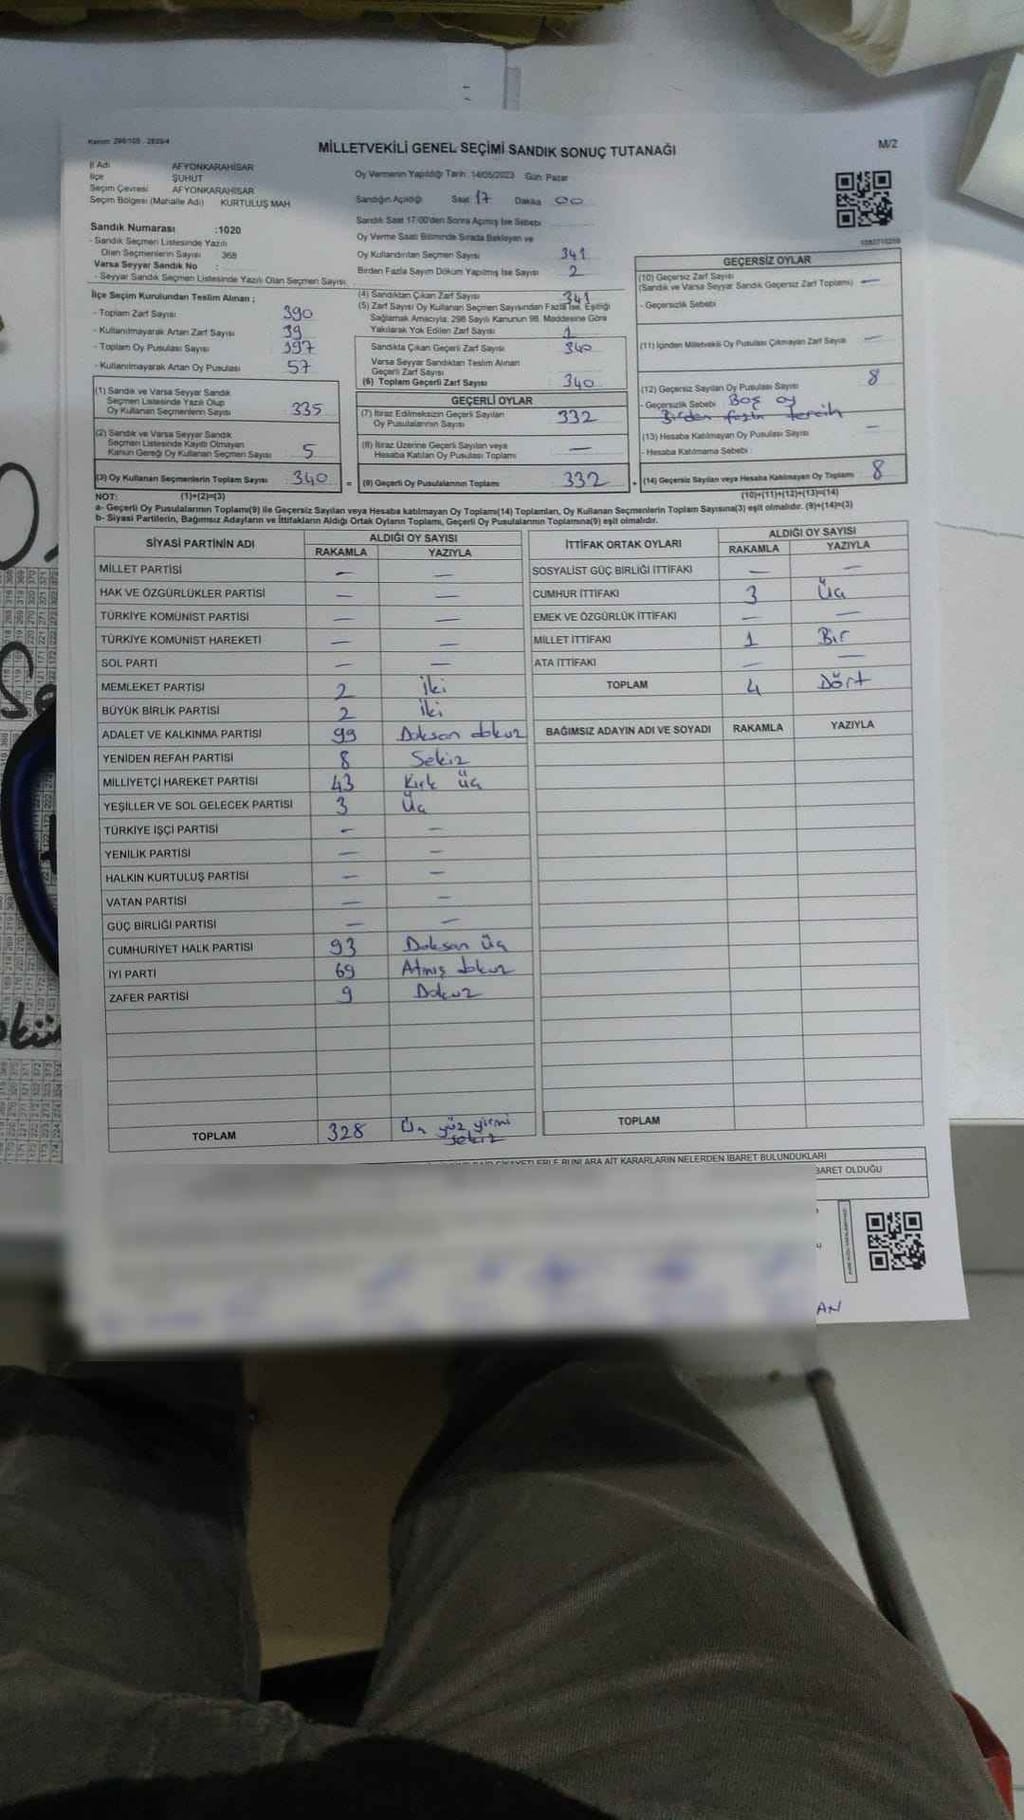 Kanun: 298/105 - 2839/4
MİLLETVEKİLİ GENEL SEÇİMİ SANDIK SONUÇ TUTANAĞI
M/2
İl Adı AFYONKARAHİSAR
İlçe ŞUHUT
Seçim Çevresi AFYONKARAHİSAR
Seçim Bölgesi (Mahalle Adı) KURTULUŞ MAH
Sandık Numarası :1020
- Sandık Seçmen Listesinde Yazılı
Olan Seçmenlerin Sayısı 368
Varsa Seyyar Sandık No :
- Seyyar Sandık Seçmen Listesinde Yazılı Olan Seçmen Sayısı
Oy Vermenin Yapıldığı Tarih: 14/05/2023 Gün: Pazar
Sandığın Açıldığı Saat 17 Dakika 00
Sandık Saat 17:00'den Sonra Açılmış İse Sebebi
Oy Verme Saati Bitiminde Sırada Bekleyen ve
Oy Kullandırılan Seçmen Sayısı 341
Birden Fazla Sayım Döküm Yapılmış İse Sayısı 2
İlçe Seçim Kurulundan Teslim Alınan ;
- Toplam Zarf Sayısı 390
- Kullanılmayarak Artan Zarf Sayısı 39
- Toplam Oy Pusulası Sayısı 397
- Kullanılmayarak Artan Oy Pusulası 57
(1) Sandık ve Varsa Seyyar Sandık
Seçmen Listesinde Yazılı Olup
Oy Kullanan Seçmenlerin Sayısı 335
(2) Sandık ve Varsa Seyyar Sandık
Seçmen Listesinde Kayıtlı Olmayan
Kanun Gereği Oy Kullanan Seçmen Sayısı 5
(3) Oy Kullanan Seçmenlerin Toplam Sayısı 340
(4) Sandıktan Çıkan Zarf Sayısı 341
(5) Zarf Sayısı Oy Kullanan Seçmen Sayısından Fazla İse, Eşitliği
Sağlamak Amacıyla; 298 Sayılı Kanunun 98. Maddesine Göre
Yakılarak Yok Edilen Zarf Sayısı 1
Sandıkta Çıkan Geçerli Zarf Sayısı 340
Varsa Seyyar Sandıktan Teslim Alınan
Geçerli Zarf Sayısı
(6) Toplam Geçerli Zarf Sayısı 340
GEÇERLİ OYLAR
(7) İtiraz Edilmeksizin Geçerli Sayılan
Oy Pusulalarının Sayısı 332
(8) İtiraz Üzerine Geçerli Sayılan veya
Hesaba Katılan Oy Pusulası Toplamı —
= (9) Geçerli Oy Pusulalarının Toplamı 332
GEÇERSİZ OYLAR
(10) Geçersiz Zarf Sayısı
(Sandık ve Varsa Seyyar Sandık Geçersiz Zarf Toplamı) —
- Geçersizlik Sebebi
(11) İçinden Milletvekili Oy Pusulası Çıkmayan Zarf Sayısı —
(12) Geçersiz Sayılan Oy Pusulası Sayısı 8
- Geçersizlik Sebebi Boş oy
Birden fazla tercih
(13) Hesaba Katılmayan Oy Pusulası Sayısı —
- Hesaba Katılmama Sebebi
+ (14) Geçersiz Sayılan veya Hesaba Katılmayan Oy Toplamı 8
NOT: (1)+(2)=(3) (10)+(11)+(12)+(13)=(14)
a- Geçerli Oy Pusulalarının Toplamı(9) ile Geçersiz Sayılan veya Hesaba katılmayan Oy Toplamı(14) Toplamları, Oy Kullanan Seçmenlerin Toplam Sayısına(3) eşit olmalıdır. (9)+(14)=(3)
b- Siyasi Partilerin, Bağımsız Adayların ve İttifakların Aldığı Ortak Oyların Toplamı, Geçerli Oy Pusulalarının Toplamına(9) eşit olmalıdır.
SİYASİ PARTİNİN ADI ALDIĞI OY SAYISI
RAKAMLA YAZIYLA
MİLLET PARTİSİ — —
HAK VE ÖZGÜRLÜKLER PARTİSİ — —
TÜRKİYE KOMÜNİST PARTİSİ — —
TÜRKİYE KOMÜNİST HAREKETİ — —
SOL PARTİ — —
MEMLEKET PARTİSİ 2 İki
BÜYÜK BİRLİK PARTİSİ 2 İki
ADALET VE KALKINMA PARTİSİ 99 Doksan dokuz
YENİDEN REFAH PARTİSİ 8 Sekiz
MİLLİYETÇİ HAREKET PARTİSİ 43 Kırk üç
YEŞİLLER VE SOL GELECEK PARTİSİ 3 Üç
TÜRKİYE İŞÇİ PARTİSİ — —
YENİLİK PARTİSİ — —
HALKIN KURTULUŞ PARTİSİ — —
VATAN PARTİSİ — —
GÜÇ BİRLİĞİ PARTİSİ — —
CUMHURİYET HALK PARTİSİ 93 Doksan üç
İYİ PARTİ 69 Atmış dokuz
ZAFER PARTİSİ 9 Dokuz
TOPLAM 328 Üç yüz yirmi
sekiz
İTTİFAK ORTAK OYLARI ALDIĞI OY SAYISI
RAKAMLA YAZIYLA
SOSYALİST GÜÇ BİRLİĞİ İTTİFAKI — —
CUMHUR İTTİFAKI 3 Üç
EMEK VE ÖZGÜRLÜK İTTİFAKI — —
MİLLET İTTİFAKI 1 Bir
ATA İTTİFAKI — —
TOPLAM 4 Dört
BAĞIMSIZ ADAYIN ADI VE SOYADI RAKAMLA YAZIYLA
TOPLAM
BUNLARA AİT KARARLARIN NELERDEN İBARET BULUNDUKLARI
BARET OLDUĞU
AN